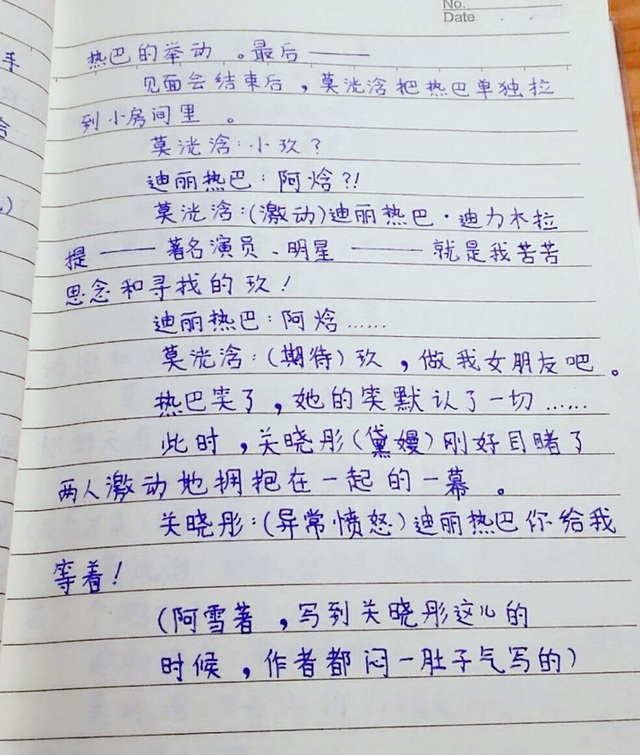 No.
Date
手
热巴的举动。最后——
见面会结束后，莫洸浛把热巴单独拉
到小房间里。
莫洸浛：小玖？
迪丽热巴：阿焓?!
莫洸浛：(激动)迪丽热巴·迪力木拉
提——著名演员、明星——就是我苦苦
思念和寻找的玖！
迪丽热巴：阿焓……
莫洸浛：(期待)玖，做我女朋友吧。
热巴笑了，她的笑默认了一切……
此时，关晓彤(黛嫚)刚好目睹了
两人激动地拥抱在一起的一幕。
关晓彤：(异常愤怒)迪丽热巴你给我
等着！
(阿雪著，写到关晓彤这儿的
时候，作者都闷一肚子气写的)